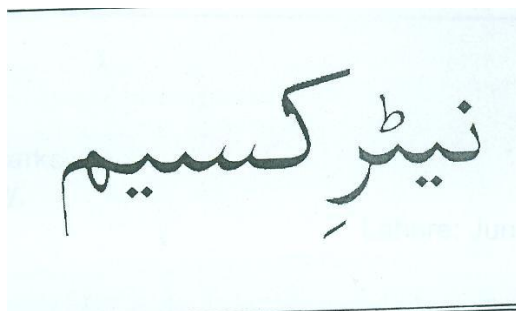 نیٹرِکسیم